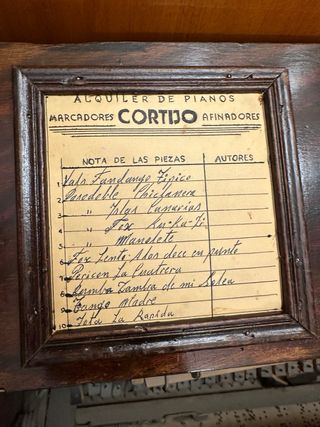 ALQUILER DE PIANOS
MARCADORES CORTIJO AFINADORES
NOTA DE LAS PIEZAS AUTORES
1 Vals Fandango Tipico
2 Pasodoble Chiclanera
3 " Islas Canarias
4 " Fox Ku-Ku-Li
5 " Manolete
6 Fox Lento Alas doce en punto
7 Pericon La Cuatrera
8 Zamba de mi
9 Tango Madre
10 Jota La